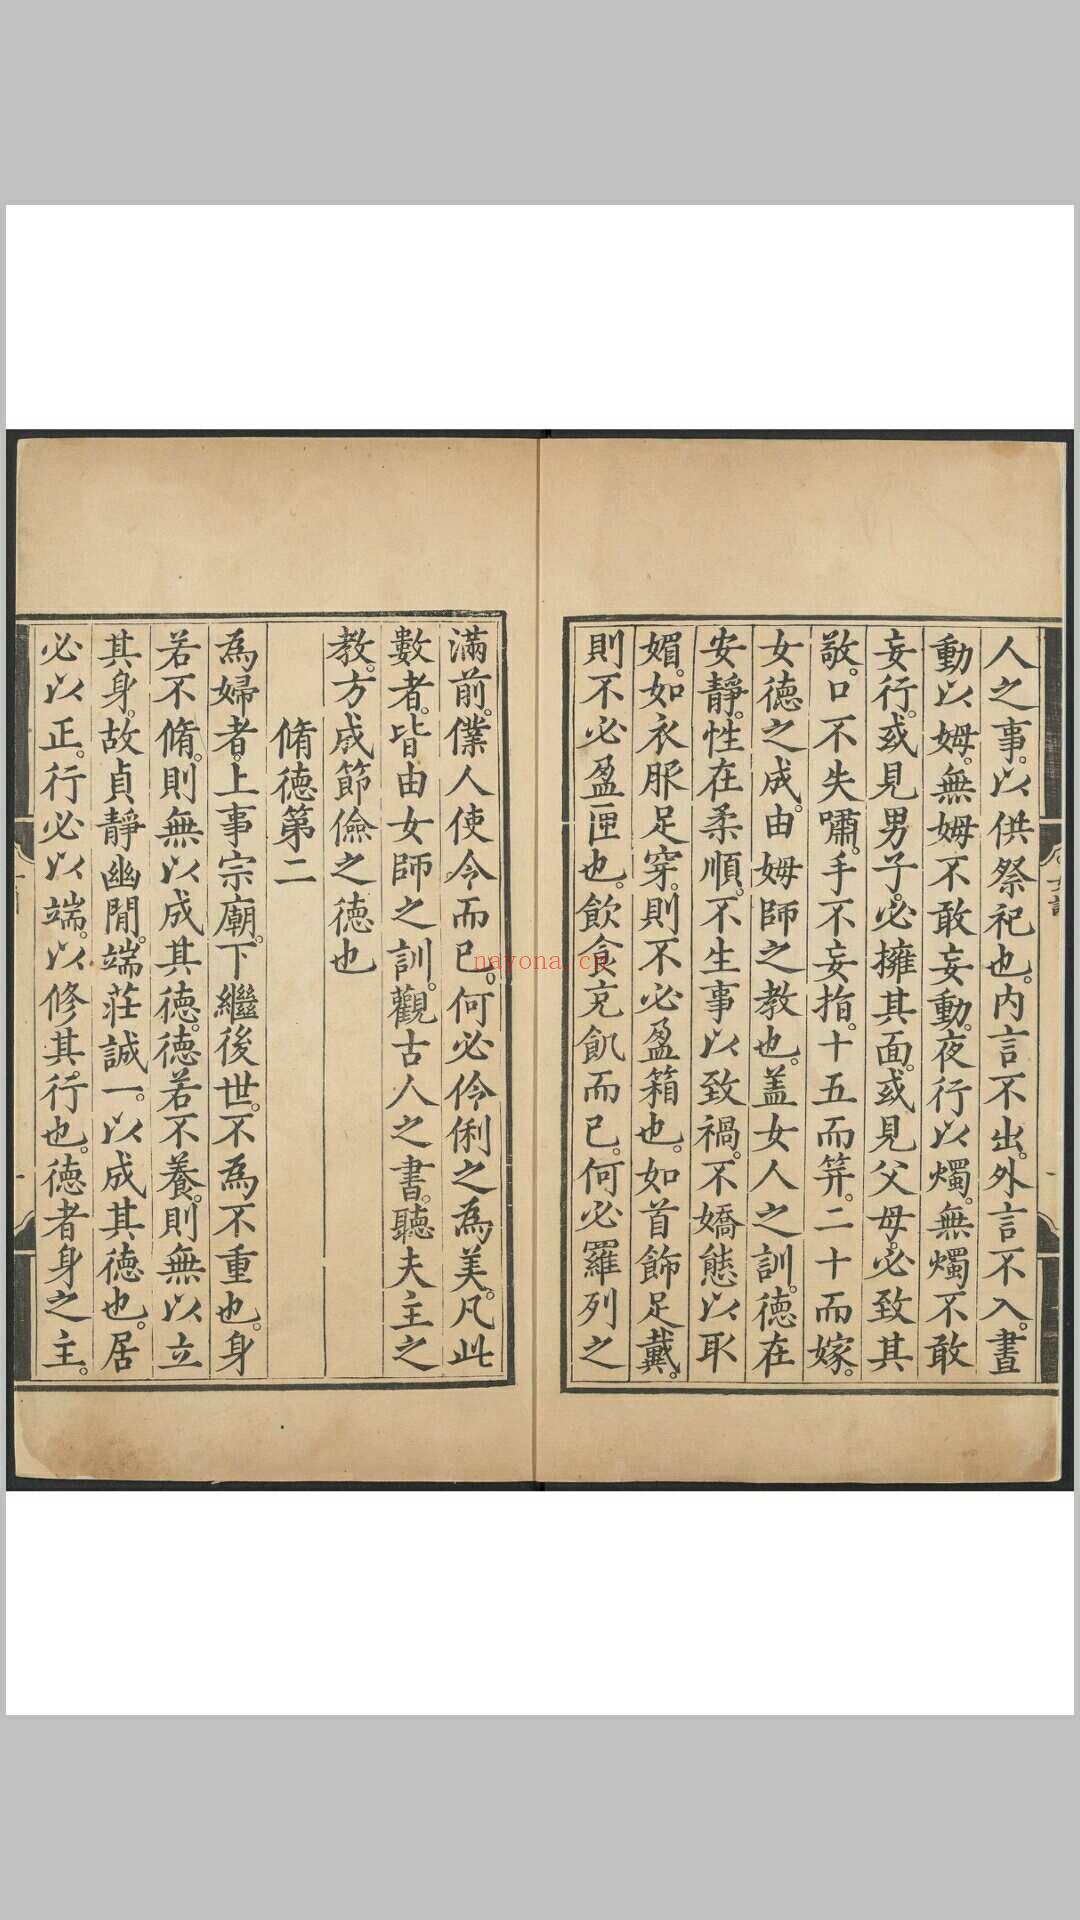 人之事。以供祭祀也。内言不出。外言不入。晝
動以姆。無姆不敢妄動。夜行以燭。無燭不敢
妄行。或見男子。必擁其面。或見父母。必致其
敬。口不失嘯。手不妄指。十五而笄。二十而嫁。
女德之成。由姆師之教也。盖女人之訓。德在
安靜。性在柔順。不生事以致禍。不嬌態以取
媚。如衣服足穿。則不必盈箱也。如首飾足戴。
則不必盈匣也。飲食充飢而已。何必羅列之
滿前。僕人使令而已。何必伶俐之為美。凡此
數者。皆由女師之訓。觀古人之書。聽夫主之
教。方成節儉之德也
脩德第二
為婦者。上事宗廟。下繼後世。不為不重也。身
若不脩。則無以成其德。德若不養。則無以立
其身。故貞靜幽閒。端莊誠一。以成其德也。居
必以正。行必以端。以修其行也。德者身之主。
nayona.cn